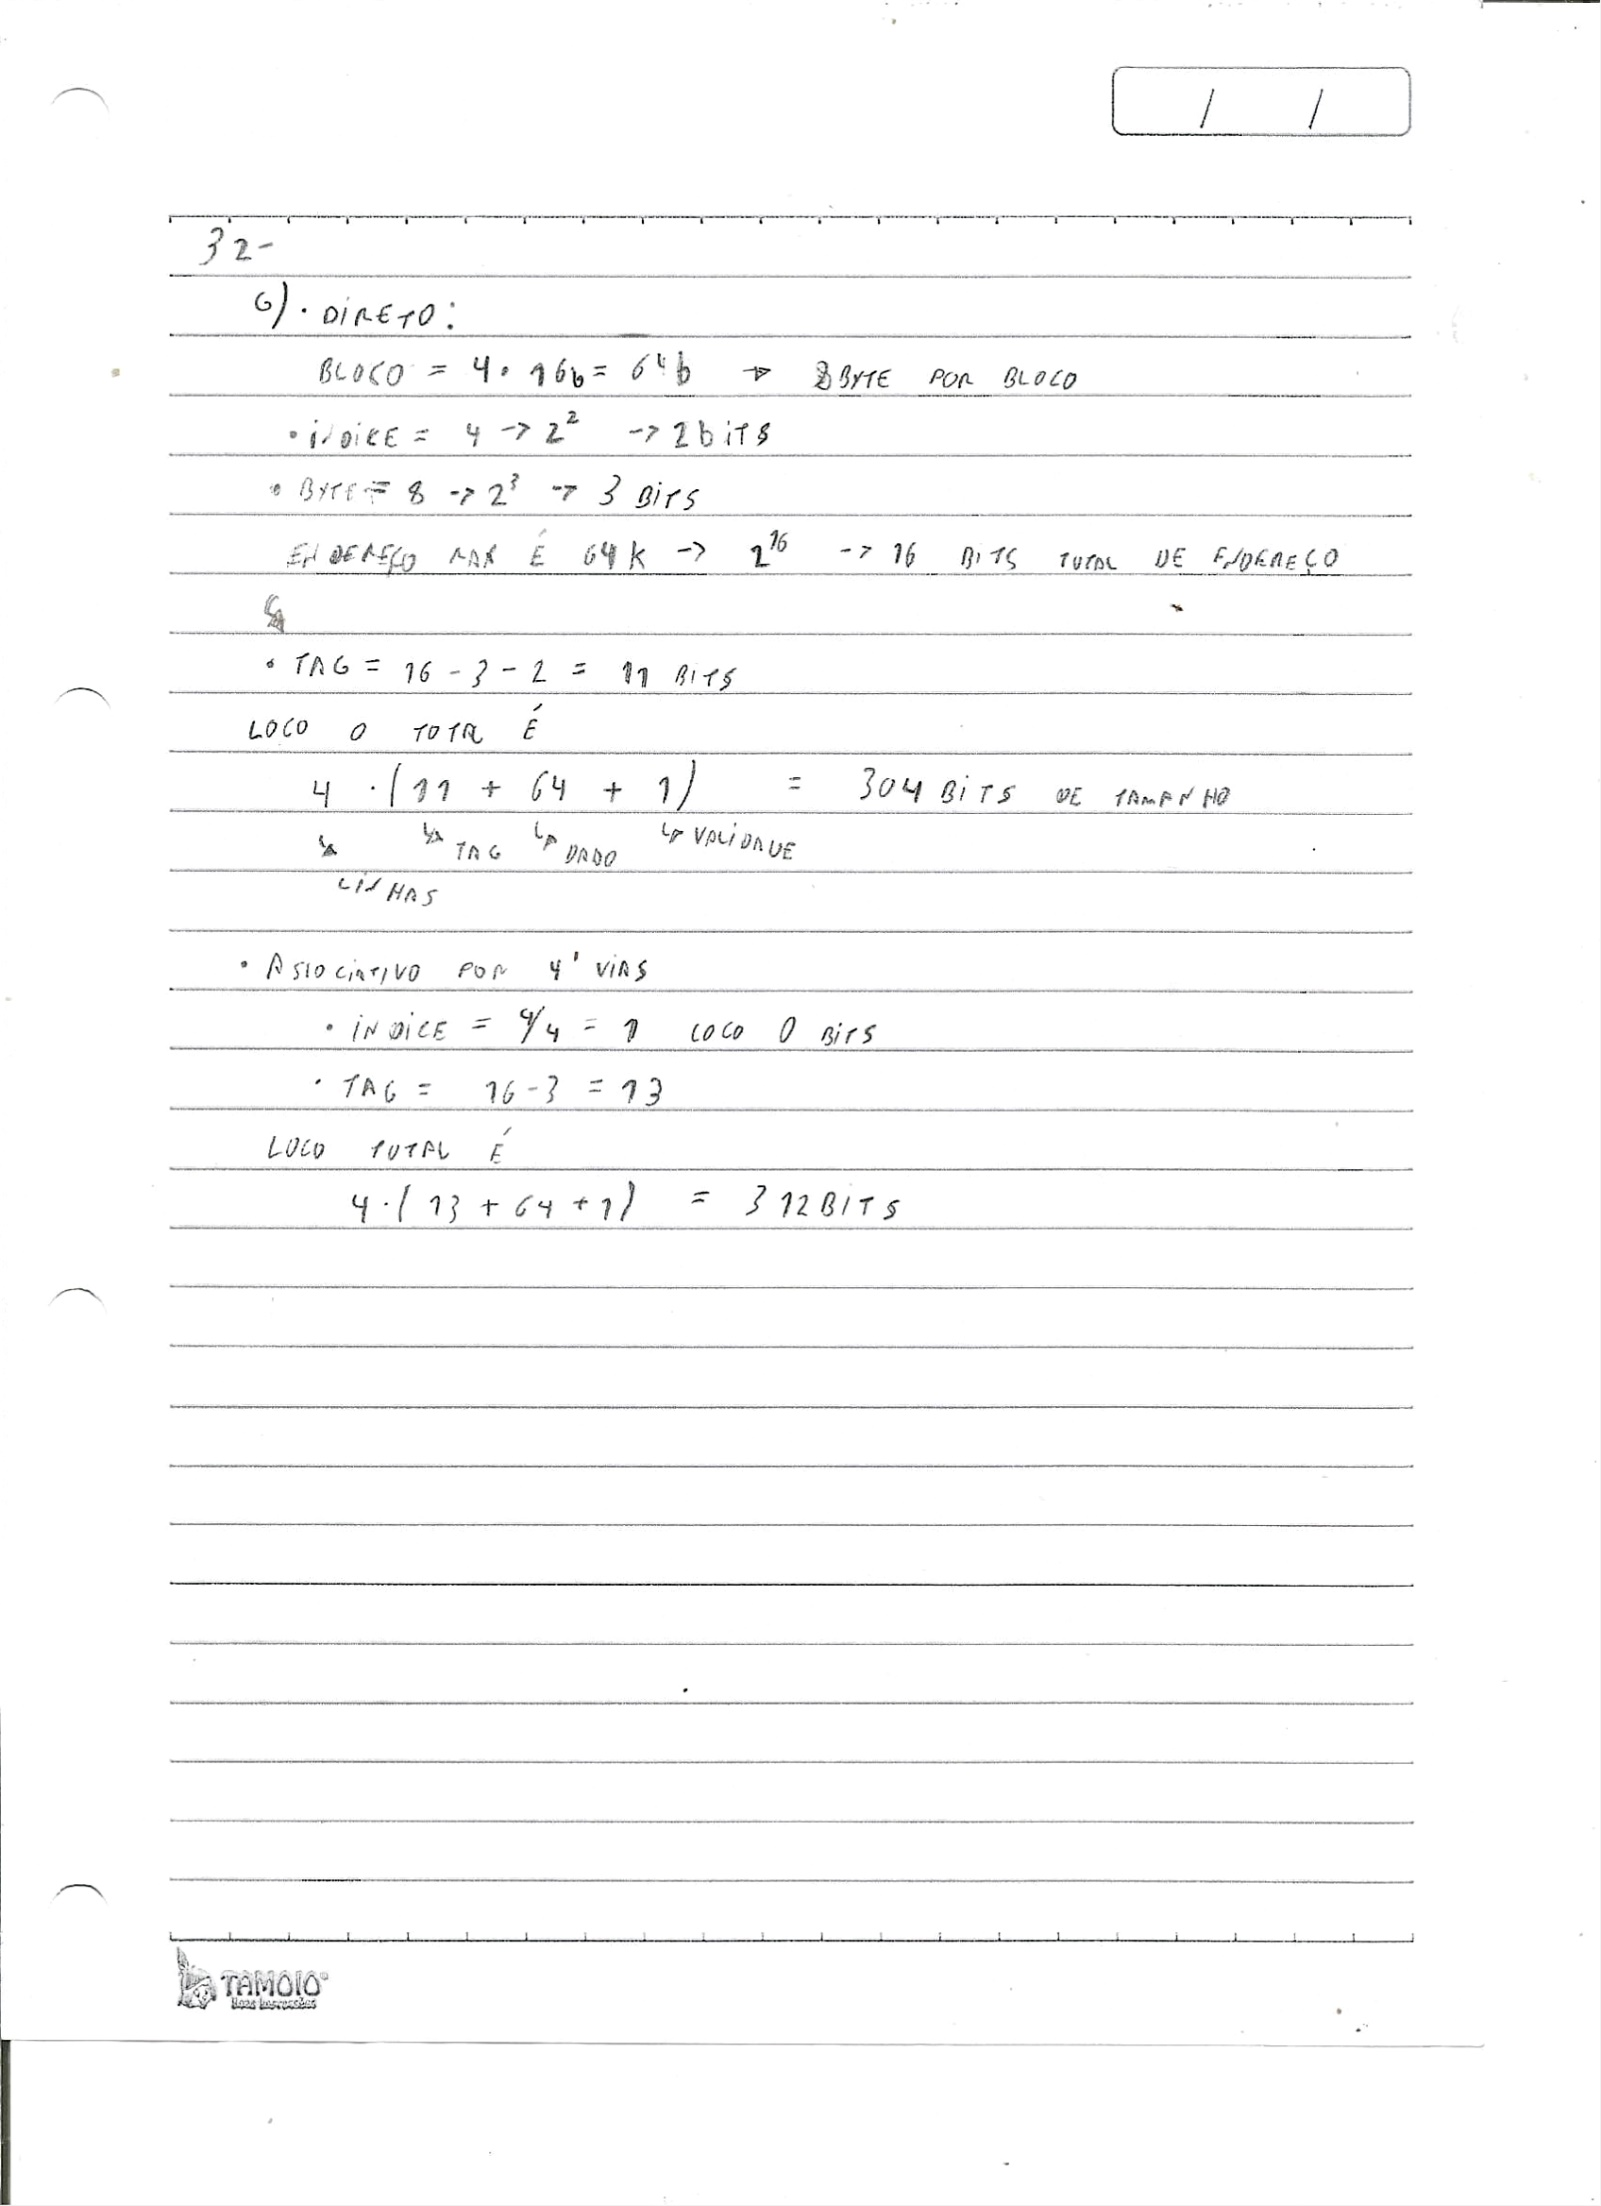 / /
32-
G) · DIRETO:
BLOCO = 4 · 16b = 64b → 8 BYTE POR BLOCO
· iNDiCE = 4 -> 2² -> 2 biTS
· BYTE = 8 -> 2³ -> 3 BiTS
ENDEREÇO MAX É 64K -> 2¹⁶ -> 16 BITS TOTAL DE ENDEREÇO
· TAG = 16 - 3 - 2 = 11 BITS
LOGO O TOTAL É
4 · (11 + 64 + 1) = 304 BiTS DE TAMANHO
↳ TAG ↳ DADO ↳ VALIDADE
LINHAS
· ASSOCIATIVO POR 4 VIAS
· iNDiCE = 4/4 = 1 LOGO 0 BiTS
· TAG = 16 - 3 = 13
LOGO TOTAL É
4 · (13 + 64 + 1) = 312 BITS
TAMOIO